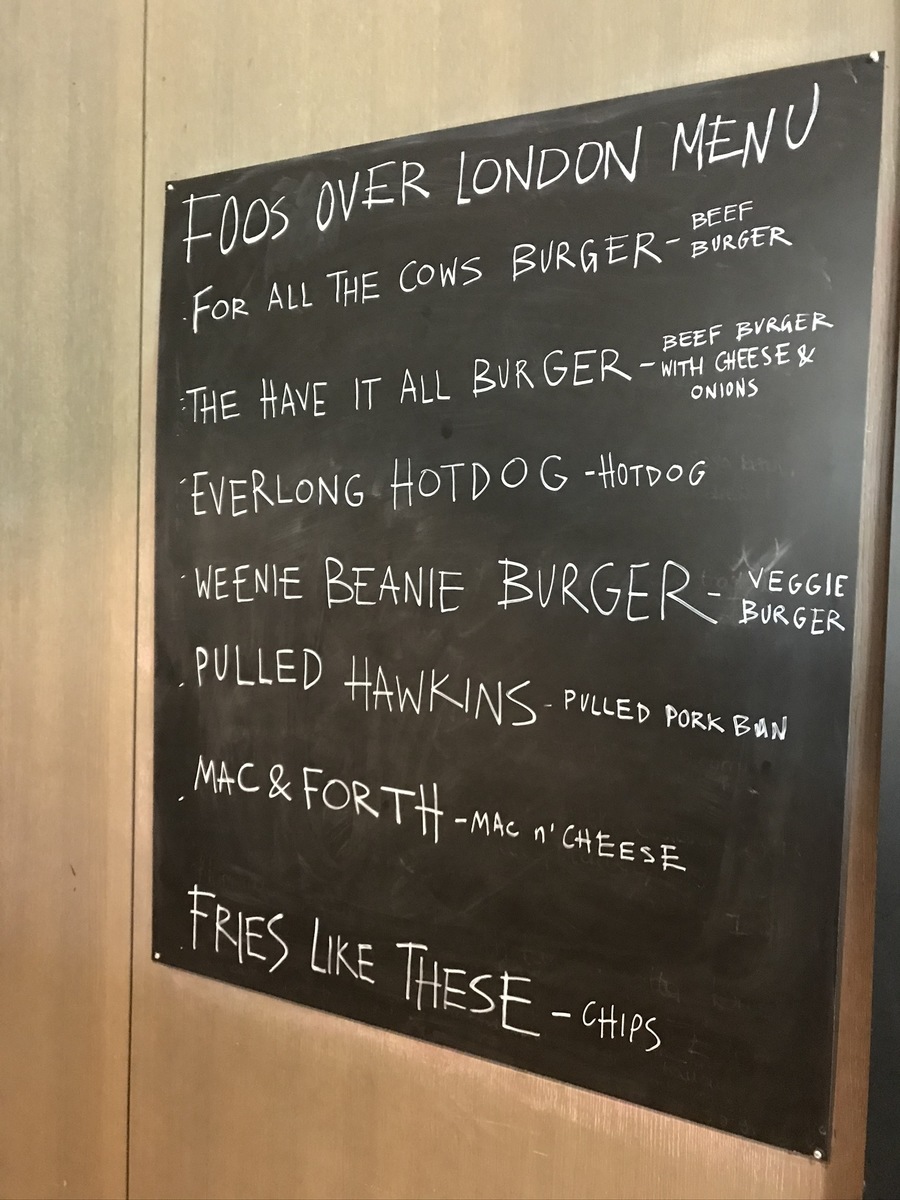 FOOS OVER LONDON MENU
· FOR ALL THE COWS BURGER - BEEF
BURGER
· THE HAVE IT ALL BURGER - BEEF BURGER
WITH CHEESE &
ONIONS
· EVERLONG HOTDOG - HOTDOG
· WEENIE BEANIE BURGER - VEGGIE
BURGER
· PULLED HAWKINS - PULLED PORK BUN
· MAC & FORTH - MAC n' CHEESE
· FRIES LIKE THESE - CHIPS